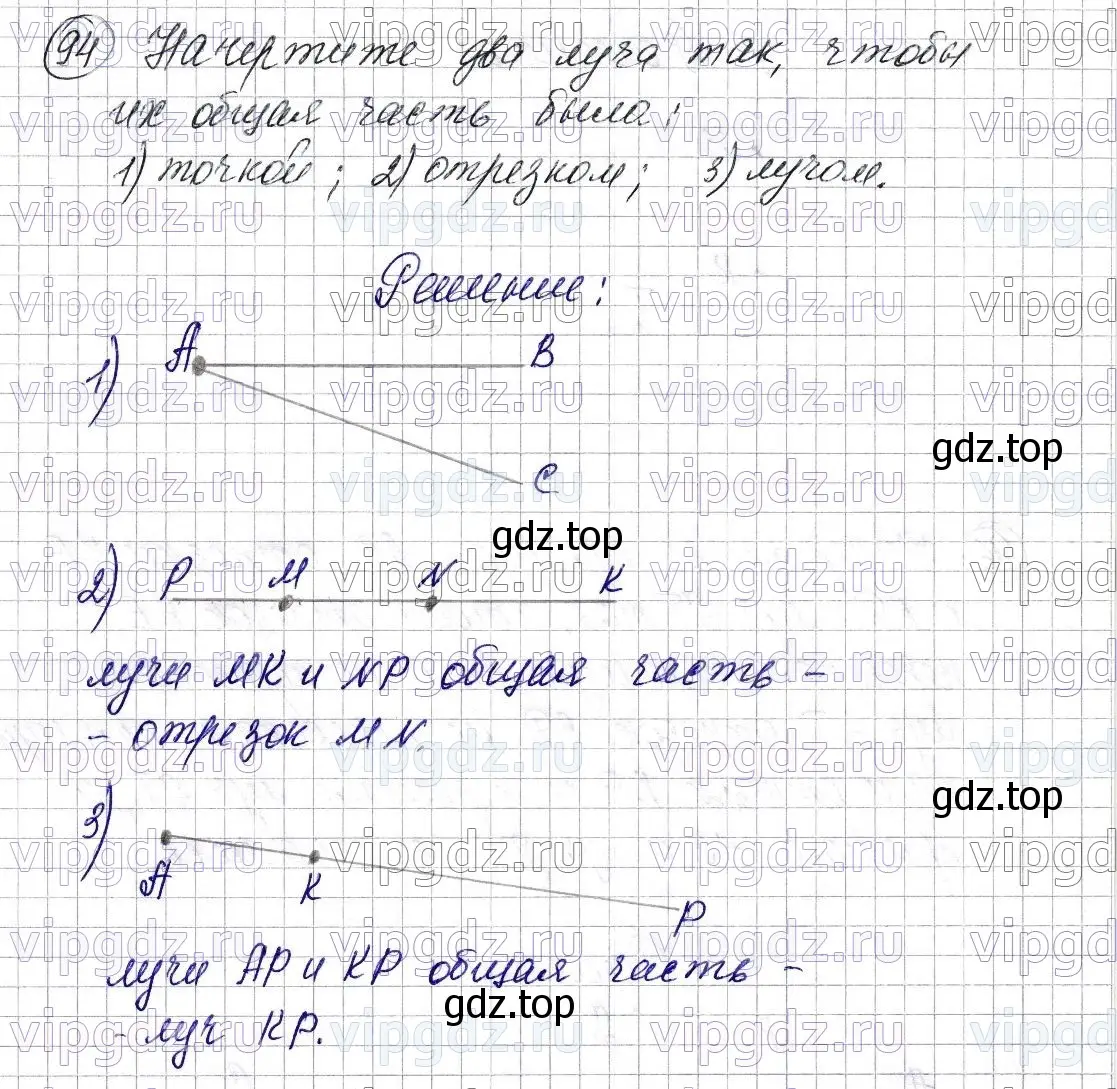 94 Начертите два луча так, чтобы
их общая часть была:
1) точкой; 2) отрезком; 3) лучом.
Решение:
1) A B
C
gdz.top
gdz.top
2) P M N K
лучи MK и NP общая часть -
- отрезок MN.
gdz.top
3) A K P
лучи AP и KP общая часть -
gdz.top
- луч KP.
vipgdz.ru